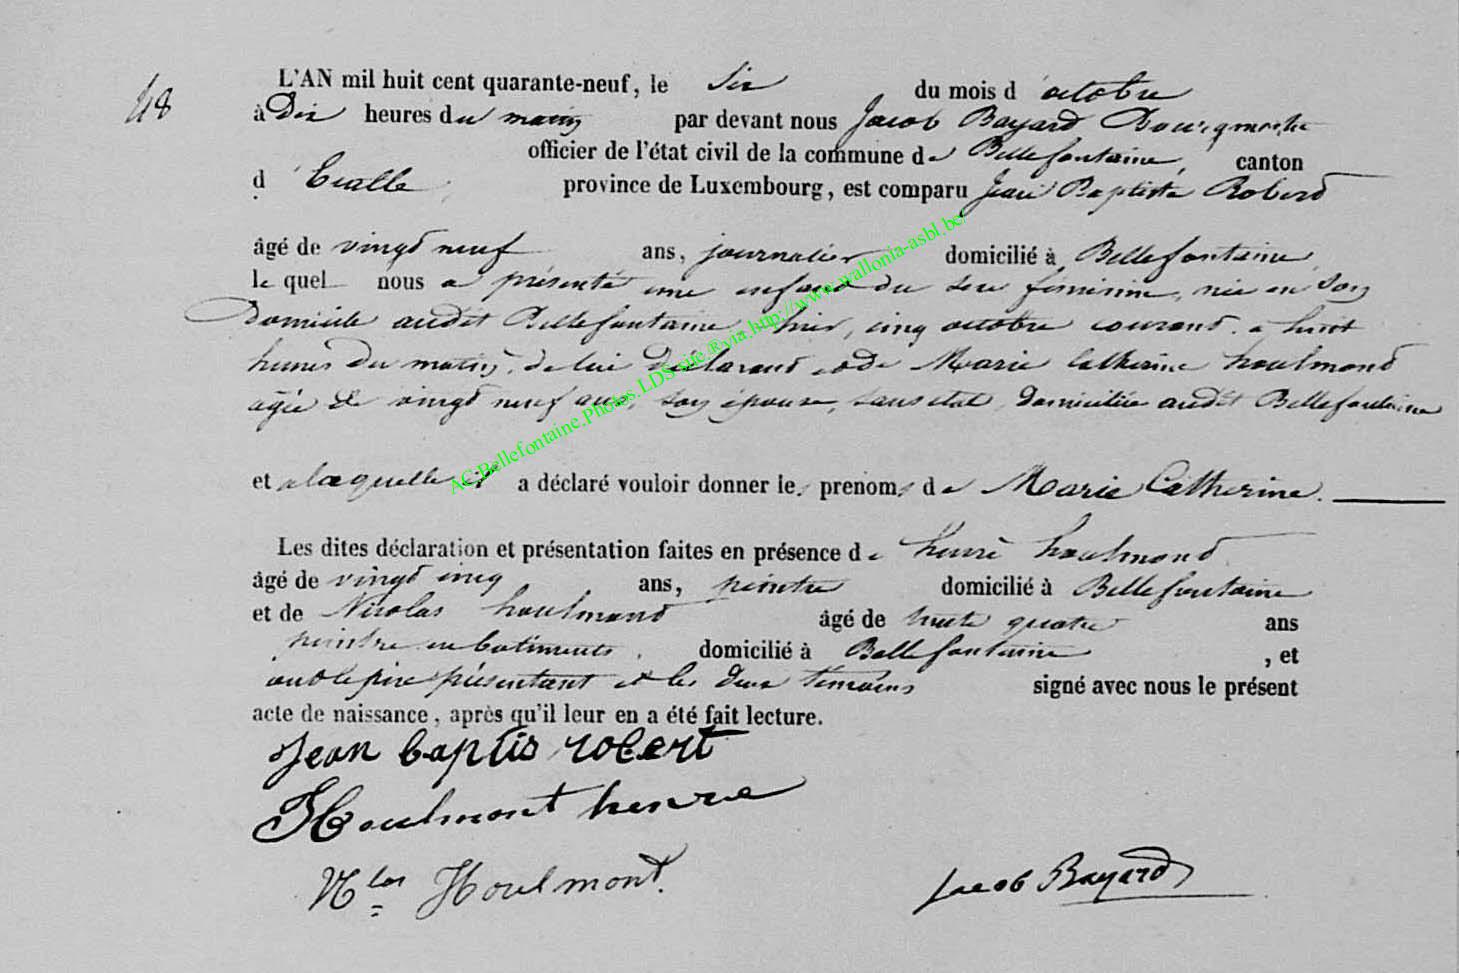 48
L'AN mil huit cent quarante-neuf, le Six du mois d'octobre
à Dix heures du matin par devant nous Jacob Bayard Bourgmestre
officier de l'état civil de la commune de Bellefontaine, canton
d'Etalle, province de Luxembourg, est comparu Jean Baptiste Roberd
âgé de vingd neuf ans, journalier domicilié à Bellefontaine,
lequel nous a présenté une enfant du sexe féminin, née en son
Domicile audit Bellefontaine hier, cinq octobre courant à huit
heures du matin, de lui déclarant et de Marie Catherine houlmond
agée de vingd neuf ans, son épouse, sans état, domiciliée audit Bellefontaine
et a laquelle il a déclaré vouloir donner les prenoms de Marie Catherine.
Les dites déclaration et présentation faites en présence de henri houlmond
âgé de vingd cinq ans, peintre domicilié à Bellefontaine
et de Nicolas houlmond âgé de trente quatre ans
peintre en batiments, domicilié à Bellefontaine, et
ont le père présentant et les deux témoins signé avec nous le présent
acte de naissance, après qu'il leur en a été fait lecture.
Jean baptis robert
Houlmont henrie
Nlas Houlmont.
Jacob Bayard
AC.Bellefontaine.Photos.LDS-site.®via.http://www.wallonia-asbl.be/